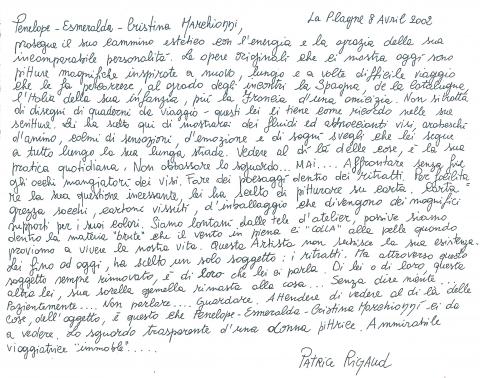 Penelope - Esmeralda - Cristina Marchionni,
La Plagne 8 Avril 2002
prosegue il suo cammino estetico con l'energia e la grazia della sua
incomparabile personalità. Le opere originali che ci mostra oggi sono
pitture magnifiche inspirate a nuovo, lungo e a volte difficile viaggio
che le fa percorrere, al grado degli incontri la Spagna, de la Catalugna,
l'Italia della sua infanzia, più la Francia d'una amicizia. Non si tratta
di disegni di quaderni da viaggio - questi lei li tiene come ricordo nelle sue
scritture. Lei ha scelto qui di mostrarci dei fluidi ed affascinanti visi, arabeschi
d'animo, colmi di sensazioni, d'emozione e di sogni svegli che lei segue
a tutto lungo la sua lunga strada. Vedere al di là delle cose, è la sua
pratica quotidiana. Non abbassare lo sguardo... MAI.... Affrontare senza fine
gli occhi mangiatori dei visi. Fare dei paesaggi dentro dei ritratti. Per facilita
re la sua questione incessante, lei ha scelto di pitturare su carta, "carta"
grezza, sacchi, cartone vissuti, d'imballaggio che divengono dei magnifici
supporti per i suoi colori. Siamo lontani dalle tele d'atelier, possive siamo
dentro la materia "brute" che il vento in piena ci "COLLA" alla pelle quando
proviamo a vivere la nostra vita. Questa Artista non subisce la sua esistenza.
Lei fino ad oggi, ha scelto un solo soggetto: i ritratti. Ma attraverso questo
soggetto sempre rinnovato, è di loro che ci parla. Di lei o di loro, questa
altra lei, sua sorella gemella rimasta alla casa... Senza dire niente....
Pazientemente.... Non parlare.... Guardare. Attendere di vedere al di là delle
cose, dell'oggetto, è questo che Penelope-Esmeralda-Cristina Marchionni ci dà
a vedere. Lo sguardo trasparente d'una donna pittrice. Ammirabile
viaggiatrice "immobile".....
Patrice Rigaud